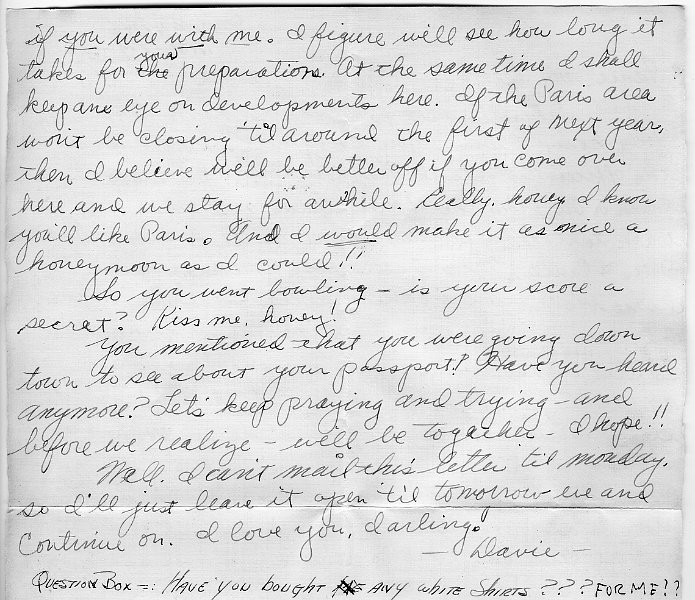 if you were with me. I figure will see how long it
takes for the your preparations. At the same time I shall
keep an eye on developments here. If the Paris area
won't be closing 'til around the first of next year,
then I believe we'll be better off if you come over
here and we stay for awhile. Really, honey I know
you'll like Paris. And I would make it as nice a
honeymoon as I could!!
So you went bowling – is your score a
secret? Kiss me, honey!
You mentioned that you were going down
town to see about your passport! Have you heard
anymore? Let's keep praying and trying – and
before we realize – we'll be togather – I hope!!
Well, I can't mail this letter 'til monday.
so I'll just leave it open 'til tomorrow eve and
Continue on. I love you, darling.
– Davie –
QUESTION BOX –: HAVE YOU BOUGHT ANY WHITE SHIRTS ??? FOR ME!?